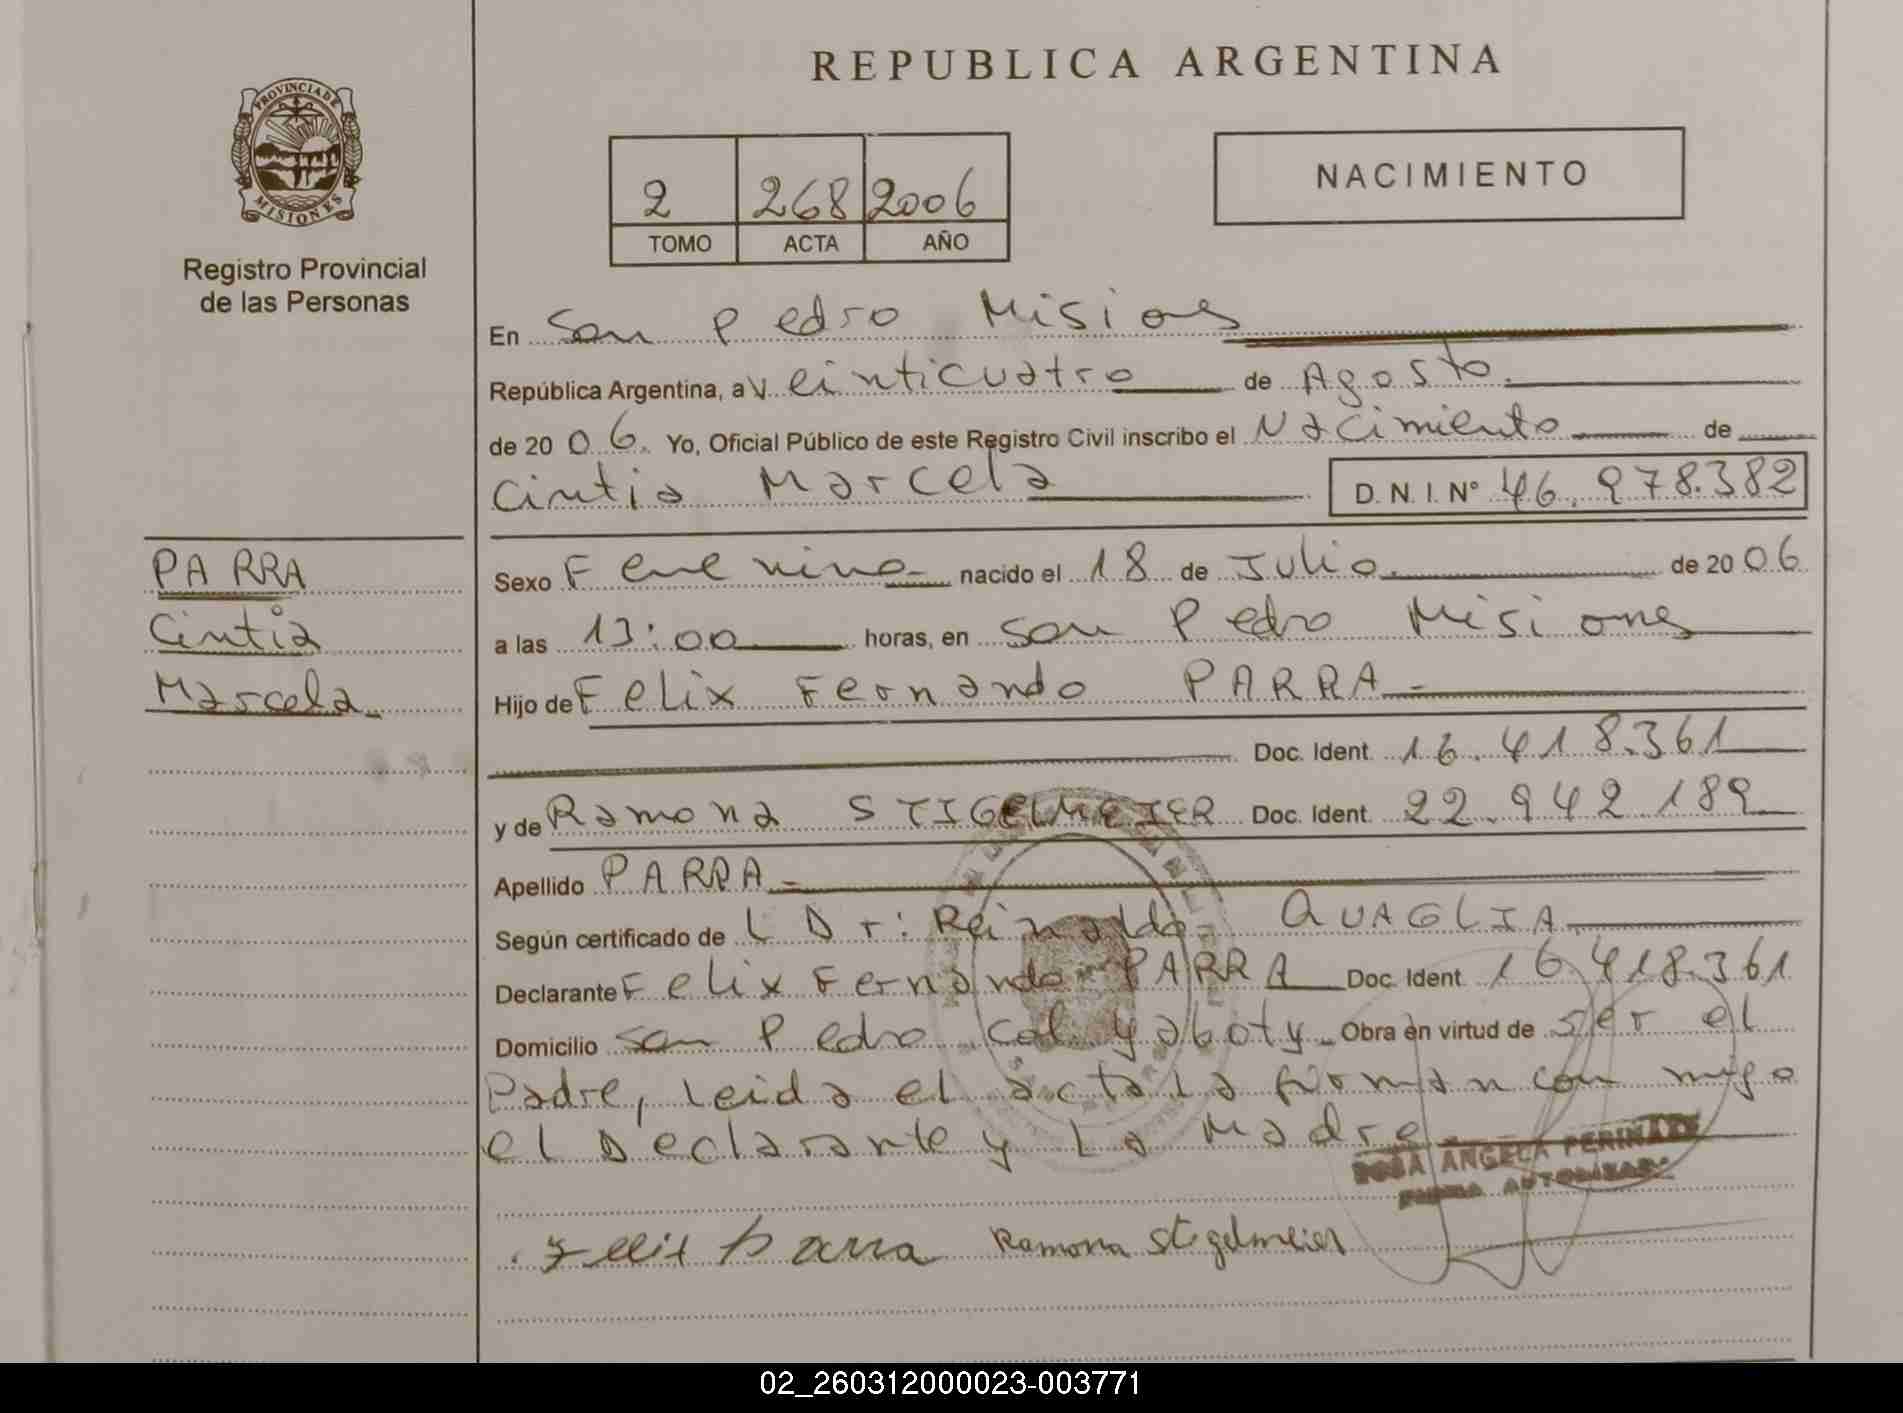 REPUBLICA ARGENTINA
PROVINCIA DE
MISIONES
Registro Provincial
de las Personas
2 268 2006
TOMO ACTA AÑO
NACIMIENTO
En San Pedro Misiones
República Argentina, a Veinticuatro de Agosto.
de 20 06. Yo, Oficial Público de este Registro Civil inscribo el Nacimiento de
Cintia Marcela D. N. I. Nº 46.978.382
PARRA
Cintia
Marcela
Sexo Femenino nacido el 18 de Julio. de 20 06
a las 13:00 horas, en San Pedro Misiones
Hijo de Felix Fernando PARRA
Doc. Ident. 16.418.361
y de Ramona STIGELMEIER Doc. Ident. 22.942 189
Apellido PARRA
Según certificado de L Dr: Reinaldo QUAGLIA
Declarante Felix Fernando PARRA Doc. Ident. 16.418.361
Domicilio San Pedro Col Yaboty Obra en virtud de ser el
Padre, Leida el acta la firman con migo
el Declarante y La Madre
ROSA ANGELA
FIRMA AUTORIZADA
Felix Parra Ramona Stigelmeier
02_260312000023-003771